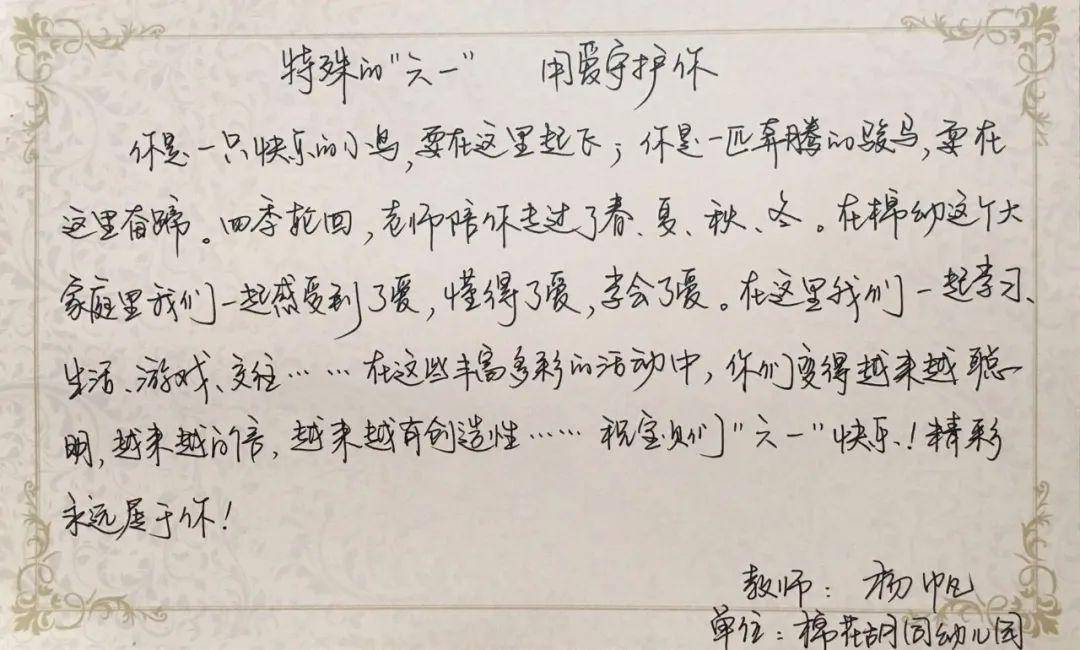 特殊的"六一" 用爱守护你
你是一只快乐的小鸟,要在这里起飞;你是一匹奔腾的骏马,要在
这里奋蹄。四季轮回,老师陪你走过了春、夏、秋、冬。在棉幼这个大
家庭里我们一起感受到了爱,懂得了爱,学会了爱。在这里我们一起学习、
生活、游戏、交往……在这些丰富多彩的活动中,你们变得越来越聪
明,越来越自信,越来越有创造性……祝宝贝们"六一"快乐!精彩
永远属于你!
教师:杨帆
单位:棉花胡同幼儿园